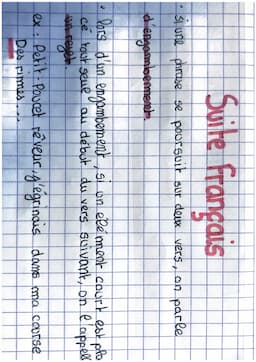 Suite français
• si une phrase se poursuit sur deux vers, on parle
d'enjambement.
• lors d'un enjambement, si un élément court est pla
cé tout seul au début du vers suivant, on l'appell
un rejet.
ex : Petit-Poucet rêveur, j'égrnais dans ma course
Des rimes...